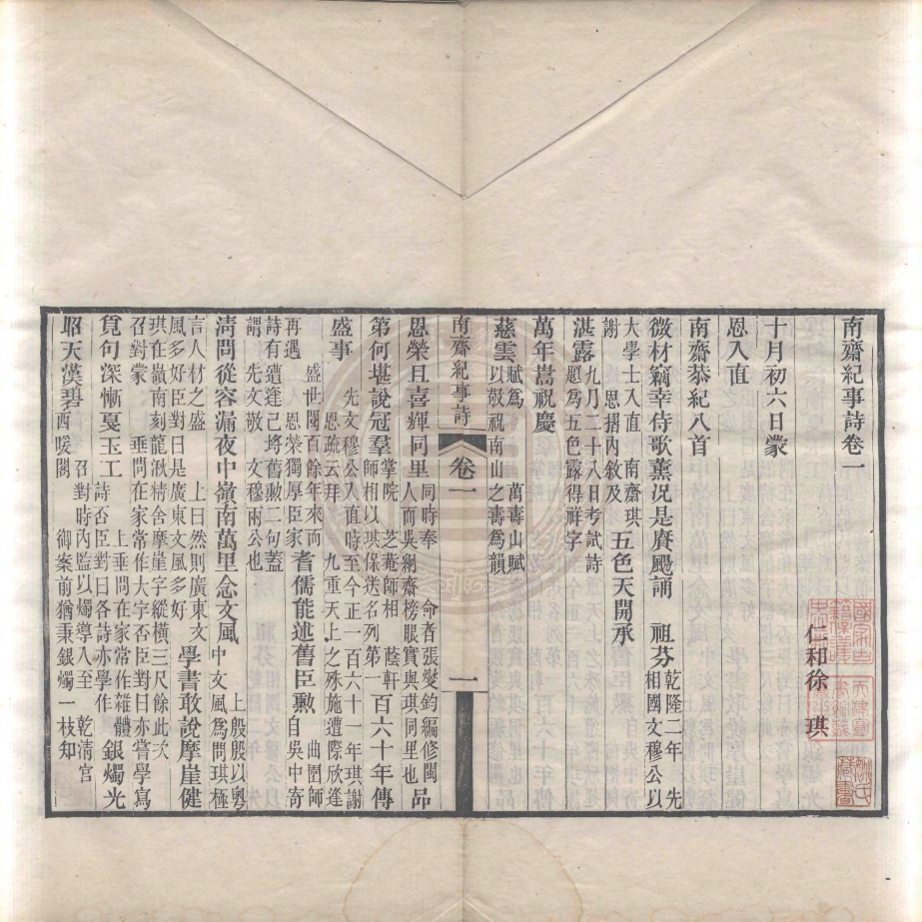 南齋紀事詩卷一
仁和徐　琪
十月初六日蒙
恩入直
南齋恭紀八首
微材竊幸侍歌薰況是賡颺誦　祖芬乾隆二年　先
相國文穆公以
大學士入直　南齋琪
謝　恩摺內敘及五色天開承
湛露九月二十八日考試詩
題爲五色露得祥字
萬年嵩祝慶
慈雲賦爲　萬壽山賦
以敬祝南山之壽爲韻
南齋紀事詩　卷一　一
恩榮且喜輝同里同時奉　命者張燮鈞編修閩
人而吳絅齋榜眼實與琪同里也品
第何堪說冠羣掌院　芝菴師相　蔭軒
師相以琪保送名列第一百六十年傳
盛事　先文穆公入值時至今正一百六十一年琪謝
恩疏云拜　九重天上之殊施遭際欣逢
盛世閱百餘年來而
再遇　恩榮獨厚臣家耆儒能述舊臣勲曲園師
自吳中寄
詩有遺逢己將舊勳二句蓋
謂　先文敬　文穆兩公也
淸問從容漏夜中嶺南萬里念文風上殷殷以粵
中文風爲問琪極
言人材之盛　上曰然則廣東文
風多好臣對曰是廣東文風多好學書敢說摩崖健
琪在嶺南刻龍湫精舍摩崖字縱橫三尺餘此次
召對蒙　垂問在家常作大字否臣對曰亦嘗學寫
覓句深慚戛玉工上垂問在家常作雜體
詩否臣對曰各詩亦學作銀燭光
昭天漢碧召對時內監以燭導入至　乾淸宮
西暖閣　御案前猶秉銀燭一枝知